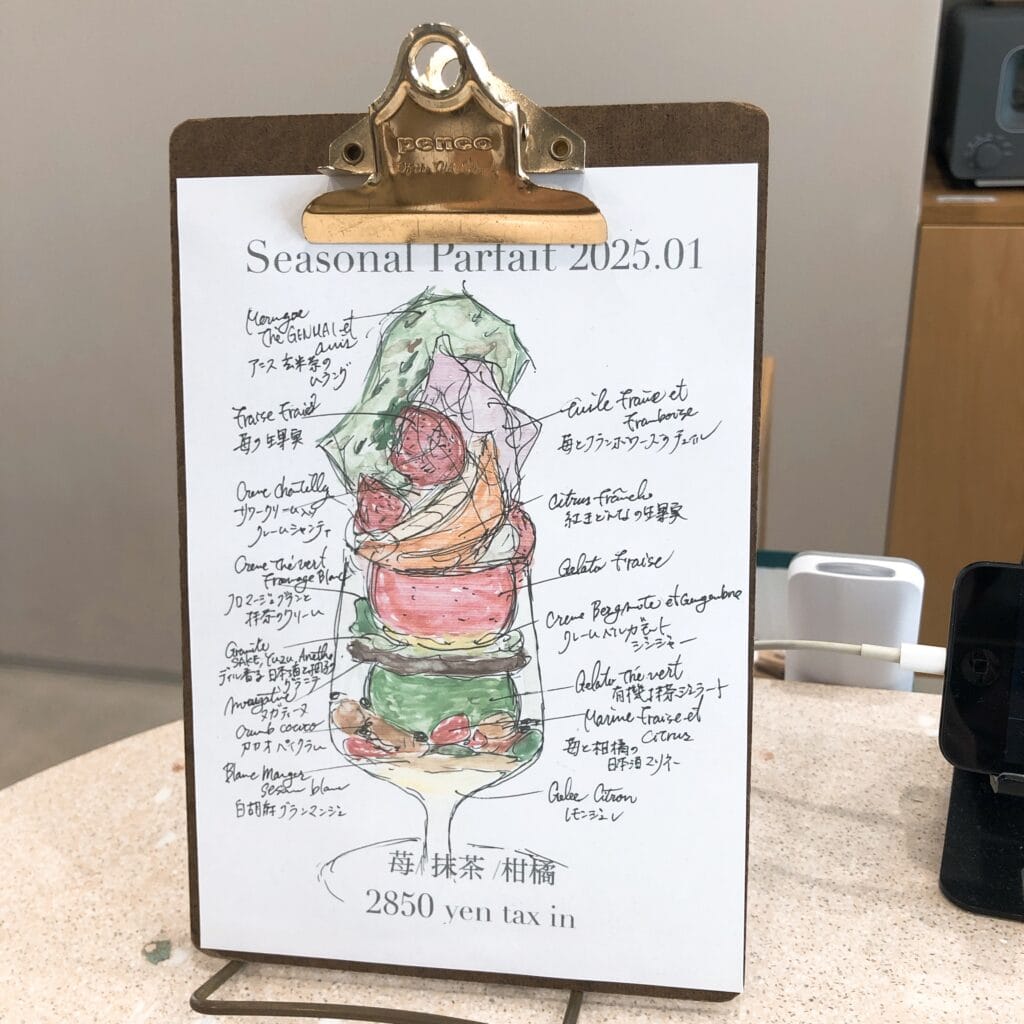 penco
Seasonal Parfait 2025.01
Meringue
Thé GENMAI et
anis
アニス玄米茶の
ムラング
Fraise Fraise
苺の生果実
Creme chantilly
サワークリーム入り
クレームシャンティ
Creme thé vert
Fromage Blanc
フロマージュブランと
抹茶のクリーム
Granite
SAKE, Yuzu, Aneth
ディル香る日本酒と柚子の
グラニテ
ヌガティーヌ
Crumb cacao
カカオ
Blanc Manger
Sesam blanc
白胡麻ブランマンジェ
Tuile Fraise et
Framboise
苺とフランボワーズのチュイル
Citrus fraîche
紅まどんなの生果実
Gelato Fraise
Creme Bergamote et Gingembre
クレームベルガモット
ジンジャー
Gelato thé vert
有機抹茶ジェラート
Marine Fraise et
Citrus
苺と柑橘の
日本酒マリネ
Gelee Citron
レモンジュレ
苺/ 抹茶 /柑橘
2850 yen tax in